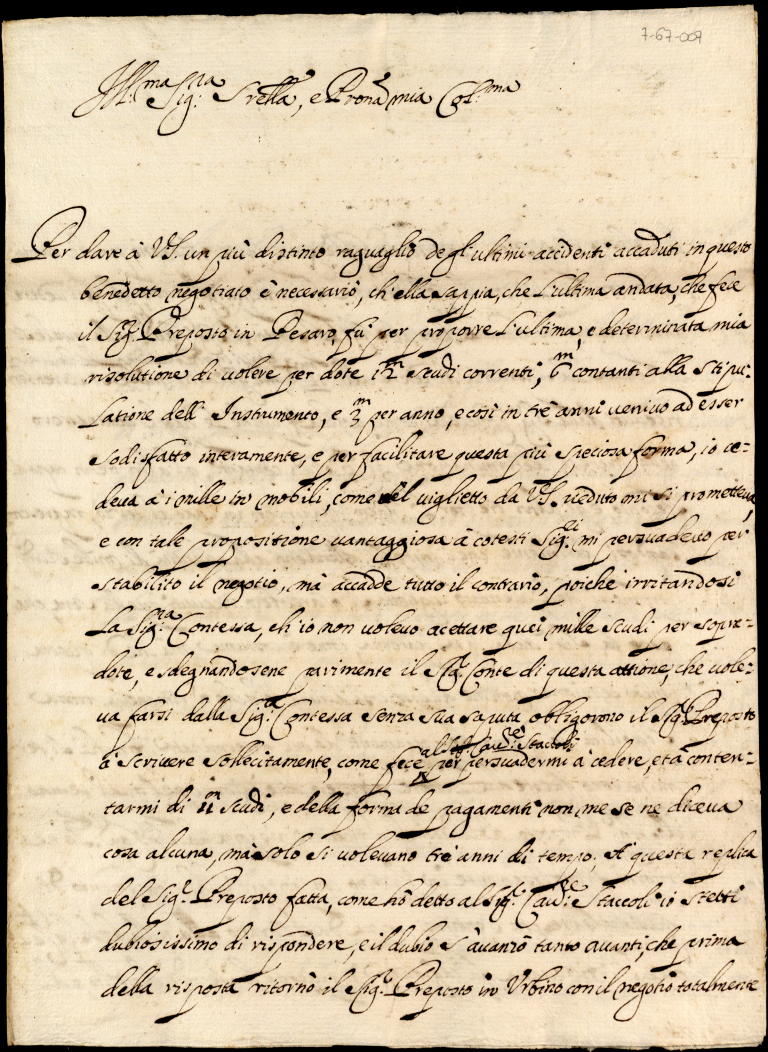 7-67-007
Ill:ma Sig:ra Srella, e Prona mia Col:ma
Per dare à V.S. un più distinto raguaglio degl'ultimi accidenti accaduti in questo
benedetto negotiato è necessario, ch'ella sappia, che l'ultima andata, che fece
il Sig:r Preposto in Pesaro, fù per proporre l'ultima, e determinata mia
risolutione di volere per dote 12m scudi correnti, 6m contanti alla stipu-
latione dell'Instrumento, e 3m per anno, e così in trè anni venivo ad esser
sodisfatto interamente, e per facilitare questa più speciosa forma, io ce-
deva à i mille in mobili, come nel viglietto da V.S. veduto mi si prometteva,
e con tale propositione vantaggiosa à cotesti Sig:ri mi persuadevo per
stabilito il negotio, mà accadde tutto il contrario, poiche irritandosi
la Sig:ra Contessa, ch'io non volevo acettare quei mille scudi per sopra-
dote, e sdegnandosene parimente il Sig:r Conte di questa attione, che vole-
va farsi dalla Sig:a Contessa senza sua saputa obligorono il Sig:r Preposto
al Sig:r Cav:re Staccoli
à scrivere sollecitamente, come fece per persuadermi à cedere, et à conten-
tarmi di 11m scudi, e della forma de pagamenti non me se ne diceva
cosa alcuna, mà solo si volevano trè anni di tempo; A questa replica
del Sig:r Preposto fatta, come hò detto al Sig:r Cav:re Staccoli io stetti
dubiosissimo di rispondere, e il dubio s'avanzò tanto avanti, che prima
della risposta ritornò il Sig:r Preposto in Urbino con il negotio totalmente